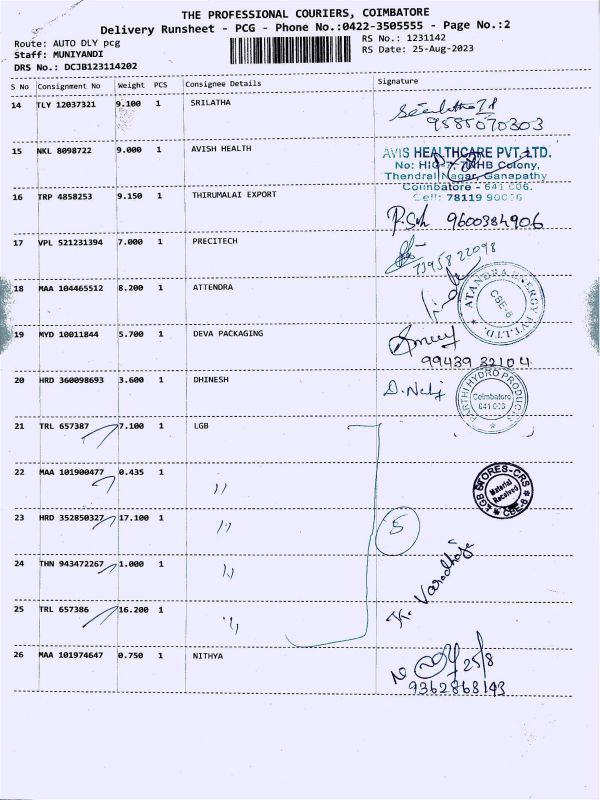 THE PROFESSIONAL COURIERS, COIMBATORE
Delivery Runsheet - PCG - Phone No.:0422-3505555 - Page No.:2
Route: AUTO DLY pcg
RS No.: 1231142
Staff: MUNIYANDI
RS Date: 25-Aug-2023
DRS No.: DCJB123114202
S No Consignment No Weight PCS Consignee Details Signature
14 TLY 12037321 9.100 1 SRILATHA
9585070303
15 NKL 8098722 9.000 1 AVISH HEALTH
AVIS HEALTHCARE PVT. LTD.
Colony,
Thendral Nagar, Ganapathy
Coimbatore - 641 006.
Cell: 78119
16 TRP 4858253 9.150 1 THIRUMALAI EXPORT
9600384906
17 VPL 521231394 7.000 1 PRECITECH
73958 22098
18 MAA 104465512 8.200 1 ATTENDRA
ATANDRA ENERGY PVT. LTD.
CBE-6
19 MYD 10011844 5.700 1 DEVA PACKAGING
99439 32104
20 HRD 360098693 3.600 1 DHINESH
PARTHI HYDRO PRODUCTS
Coimbatore
641 006
21 TRL 657387 7.100 1 LGB
22 MAA 101900477 0.435 1 ,,
LGB STORES-CRS
Material
Received
CBE-6
23 HRD 352850327 17.100 1 ,,
5
24 THN 943472267 1.000 1 ,,
K. Varadhaja
25 TRL 657386 16.200 1 ,,
26 MAA 101974647 0.750 1 NITHYA
25/8
9362868143